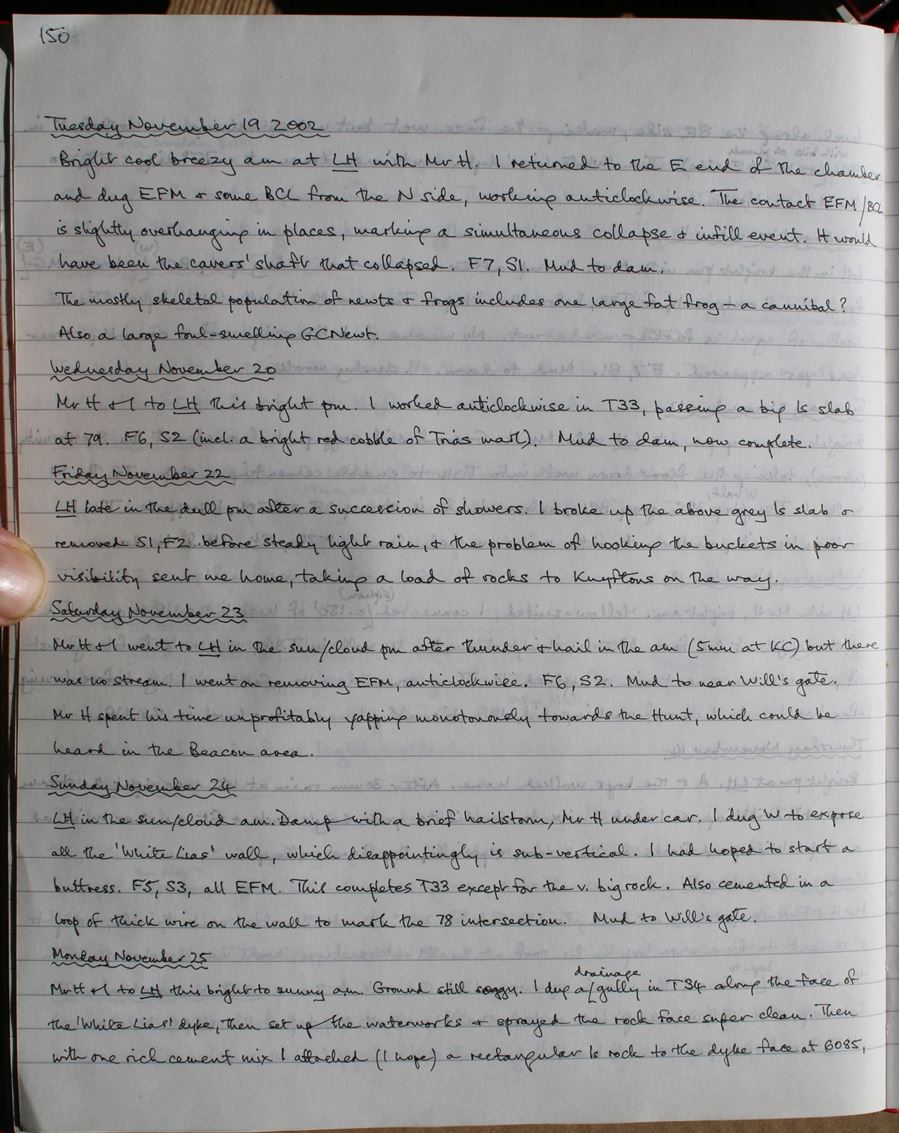 150
Tuesday November 19 2002
Bright cool breezy am at LH with Mr H. I returned to the E end of the chamber
and dug EFM & some BCL from the N side, working anticlockwise. The contact EFM/BCL
is slightly overhanging in places, marking a simultaneous collapse & infill event. It would
have been the cavers' shaft that collapsed. F7, S1. Mud to dam.
The mostly skeletal population of newts & frogs includes one large fat frog – a cannibal?
Also a large foul-smelling GCNewt.
Wednesday November 20
Mr H & I to LH this bright pm. I worked anticlockwise in T33, passing a big ls slab
at 79. F6, S2 (incl. a bright red cobble of Trias marl). Mud to dam, now complete.
Friday November 22
LH late in the dull pm after a succession of showers. I broke up the above grey ls slab &
removed S1, F2 before steady light rain, & the problem of hooking the buckets in poor
visibility sent me home, taking a load of rocks to Knyftons on the way.
Saturday November 23
Mr H & I went to LH in the sun/cloud pm after thunder & hail in the am (5mm at KC) but there
was no stream. I went on removing EFM, anticlockwise. F6, S2. Mud to near Will's gate.
Mr H spent his time unprofitably yapping monotonously towards the Hunt, which could be
heard in the Beacon area.
Sunday November 24
LH in the sun/cloud am. Damp with a brief hailstorm, Mr H under car. I dug W to expose
all the 'White Lias' wall, which disappointingly is sub-vertical. I had hoped to start a
buttress. F5, S3, all EFM. This completes T33 except for the v. big rock. Also cemented in a
loop of thick wire on the wall to mark the 78 intersection. Mud to Will's gate.
Monday November 25
Mr H & I to LH this bright to sunny am. Ground still soggy. I dug a drainage gully in T34 along the face of
the 'White Lias' dyke, then set up the waterworks & sprayed the rock face super clean. Then
with one rich cement mix I attached (I hope) a rectangular ls rock to the dyke face at 6085,